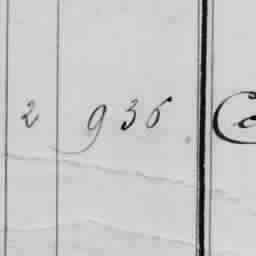 2 936.